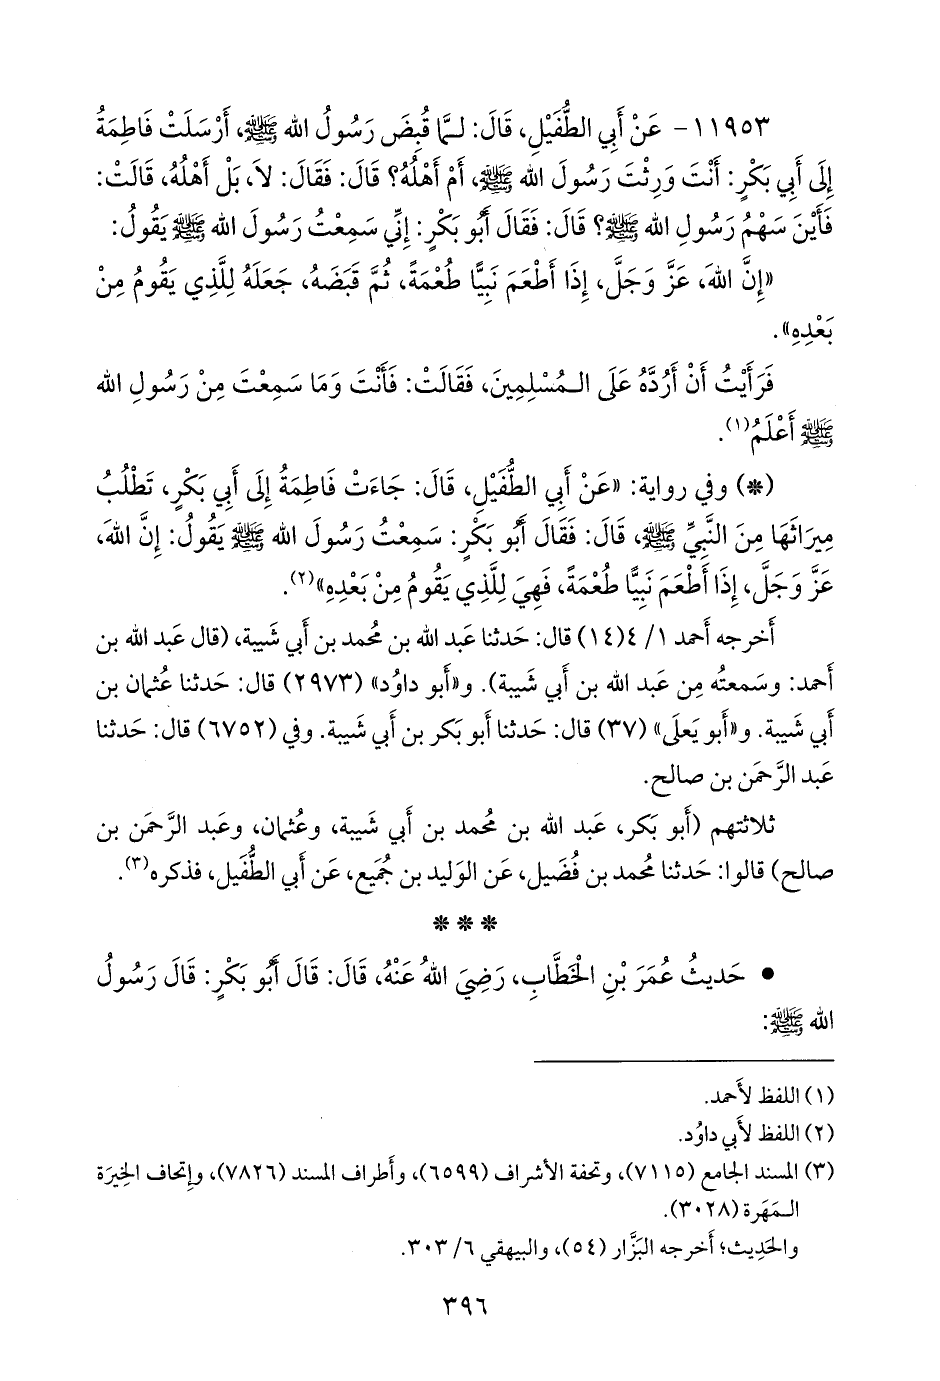 ١١٩٥٣- عَنْ أَبِي الطُّفَيْلِ، قَالَ: لـمَّا قُبِضَ رَسُولُ الله ﷺ، أَرْسَلَتْ فَاطِمَةُ
إِلَى أَبِي بَكْرٍ: أَنْتَ وَرِثْتَ رَسُولَ الله ﷺ، أَمْ أَهْلُهُ؟ قَالَ: فَقَالَ: لاَ، بَلْ أَهْلُهُ، قَالَتْ:
فَأَيْنَ سَهْمُ رَسُولِ الله ﷺ؟ قَالَ: فَقَالَ أَبُو بَكْرٍ: إِنِّي سَمِعْتُ رَسُولَ الله ﷺ يَقُولُ:
«إِنَّ اللهَ، عَزَّ وَجَلَّ، إِذَا أَطْعَمَ نَبِيًّا طُعْمَةً، ثُمَّ قَبَضَهُ، جَعَلَهُ لِلَّذِي يَقُومُ مِنْ
بَعْدِهِ».
فَرَأَيْتُ أَنْ أَرُدَّهُ عَلَى الـمُسْلِمِينَ، فَقَالَتْ: فَأَنْتَ وَمَا سَمِعْتَ مِنْ رَسُولِ الله
ﷺ أَعْلَمُ(١).
(*) وفي رواية: «عَنْ أَبِي الطُّفَيْلِ، قَالَ: جَاءَتْ فَاطِمَةُ إِلَى أَبِي بَكْرٍ، تَطْلُبُ
مِيرَاثَهَا مِنَ النَّبِيِّ ﷺ، قَالَ: فَقَالَ أَبُو بَكْرٍ: سَمِعْتُ رَسُولَ الله ﷺ يَقُولُ: إِنَّ اللهَ،
عَزَّ وَجَلَّ، إِذَا أَطْعَمَ نَبِيًّا طُعْمَةً، فَهِيَ لِلَّذِي يَقُومُ مِنْ بَعْدِهِ»(٢).
أَخرجه أَحمد ١/ ٤(١٤) قال: حَدثنا عَبد الله بن مُحمد بن أَبي شَيبة، (قال عَبد الله بن
أَحمد: وسَمعتُه مِن عَبد الله بن أَبي شَيبة). و«أَبو داوُد» (٢٩٧٣) قال: حَدثنا عُثمان بن
أَبي شَيبة. و«أَبو يَعلَى» (٣٧) قال: حَدثنا أَبو بَكر بن أَبي شَيبة. وفي (٦٧٥٢) قال: حَدثنا
عَبد الرَّحمَن بن صالح.
ثلاثتهم (أَبو بَكر، عَبد الله بن مُحمد بن أَبي شَيبة، وعُثمان، وعَبد الرَّحمَن بن
صالح) قالوا: حَدثنا مُحمد بن فُضَيل، عَن الوَليد بن جُمَيع، عَن أَبي الطُّفَيل، فذكره(٣).
* * *
• حَديثُ عُمَرَ بْنِ الْخَطَّابِ، رَضِيَ اللهُ عَنْهُ، قَالَ: قَالَ أَبُو بَكْرٍ: قَالَ رَسُولُ
الله ﷺ:
(١) اللفظ لأَحمد.
(٢) اللفظ لأَبي داوُد.
(٣) المسند الجامع (٧١١٥)، وتحفة الأشراف (٦٥٩٩)، وأَطراف المسند (٧٨٢٦)، وإتحاف الخِيرَة
الـمَهَرة (٣٠٢٨).
والحَدِيث؛ أَخرجه البَزَّار (٥٤)، والبيهقي ٦/ ٣٠٣.
٣٩٦